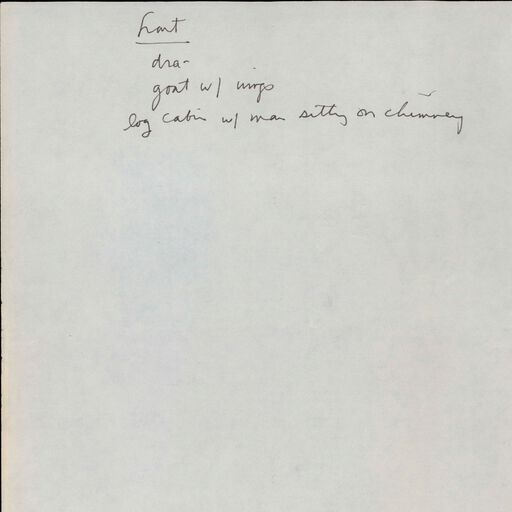 front
dra-
goat w/ wings
log cabin w/ man sitting on chimney